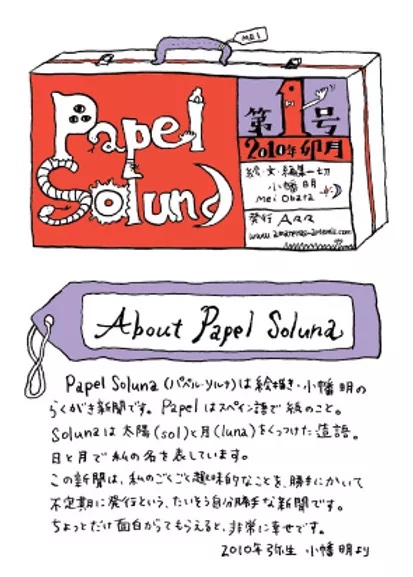 MEI
Papel
Soluna
第1号
2010年 卯月
絵・文・編集一切
小幡明
Mei Obata
発行 ARR
About Papel Soluna
Papel Soluna (パペル・ソルナ)は絵描き・小幡明の
らくがき新聞です。Papelはスペイン語で紙のこと。
Solunaは太陽(sol)と月(luna)をくっつけた造語。
日と月で私の名を表しています。
この新聞は、私のごくごく趣味的なことを、勝手にかいて
不定期に発行という、たいそう自分勝手な新聞です。
ちょっとだけ面白がってもらえると、非常に幸せです。
2010年弥生 小幡明より